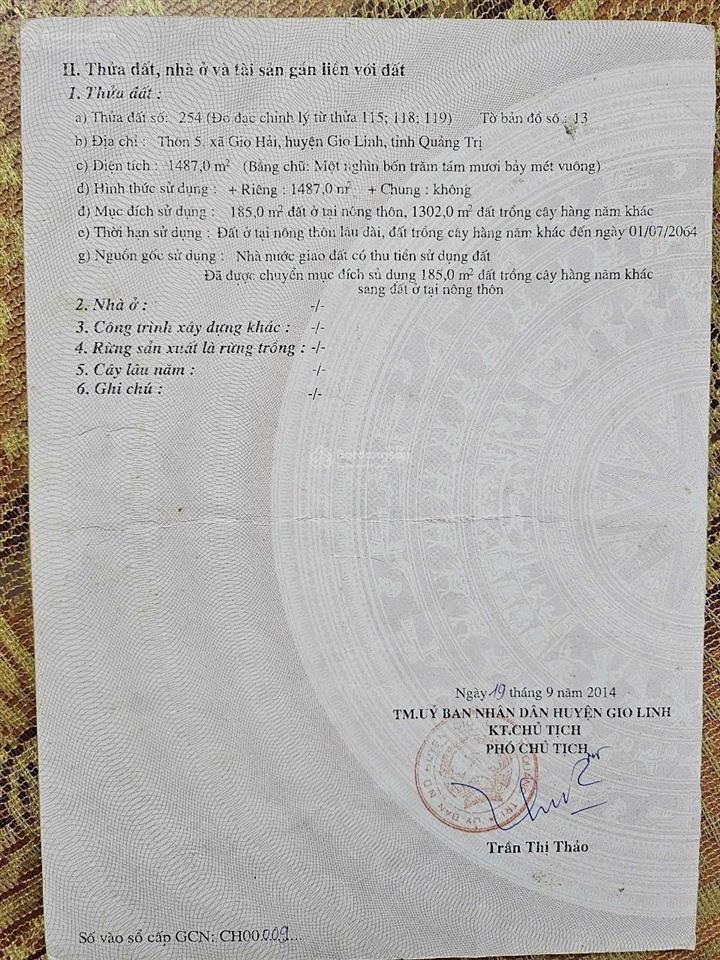 II. Thửa đất, nhà ở và tài sản gắn liền với đất
1. Thửa đất :
a) Thửa đất số: 254 (Đo đạc chỉnh lý từ thửa 115; 118; 119) Tờ bản đồ số : 13
b) Địa chỉ : Thôn 5, xã Gio Hải, huyện Gio Linh, tỉnh Quảng Trị
c) Diện tích : 1487,0 m² (Bằng chữ: Một nghìn bốn trăm tám mươi bảy mét vuông)
d) Hình thức sử dụng : + Riêng : 1487,0 m² + Chung : không
đ) Mục đích sử dụng : 185,0 m² đất ở tại nông thôn, 1302,0 m² đất trồng cây hàng năm khác
e) Thời hạn sử dụng : Đất ở tại nông thôn lâu dài, đất trồng cây hàng năm khác đến ngày 01/07/2064
g) Nguồn gốc sử dụng : Nhà nước giao đất có thu tiền sử dụng đất
Đã được chuyển mục đích sử dụng 185,0 m² đất trồng cây hàng năm khác
sang đất ở tại nông thôn
2. Nhà ở : -/-
3. Công trình xây dựng khác : -/-
4. Rừng sản xuất là rừng trồng : -/-
5. Cây lâu năm : -/-
6. Ghi chú : -/-
Batdongsan
Ngày 19 tháng 9 năm 2014
TM.UỶ BAN NHÂN DÂN HUYỆN GIO LINH
KT.CHỦ TỊCH
PHÓ CHỦ TỊCH
Trần Thị Thảo
Số vào sổ cấp GCN: CH00.009....